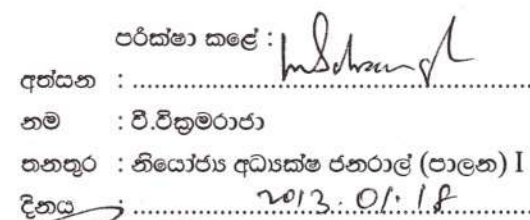 පරික්ෂා කළේ :
අත්සන : ........................................
නම : වී.වික්‍රමරාජා
තනතුර : නියෝජ්‍ය අධ්‍යක්ෂ ජනරාල් (පාලන) I
දිනය : 2013.01.18